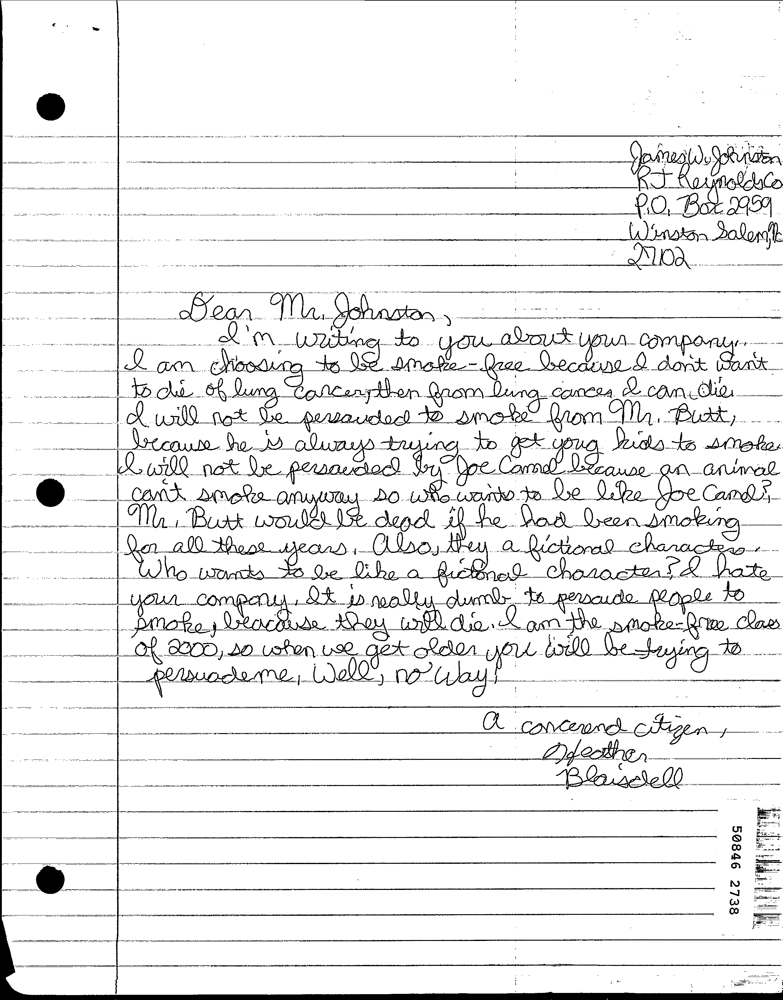 James W. Johnston
RJ Reynolds Co
P.O. Box 2959
Winston Salem, Nc
27102
Dear Mr. Johnston,
I'm writing to you about your company.
I am choosing to be smoke-free because I don't want
to die of lung cancer, then from lung cancer I can die.
I will not be persauded to smoke from Mr. Butt,
because he is always trying to get youg kids to smoke.
I will not be persauded by Joe Camel because an animal
can't smoke anyway so who wants to be like Joe Camel?
Mr. Butt would be dead if he had been smoking
for all these years. Also, they a fictional characters.
Who wants to be like a fictional character? I hate
your company. It is really dumb to persaude people to
smoke, beacause they will die. I am the smoke-free class
of 2000, so when we get older you will be trying to
persuade me, Well, no way!
A concerend citizen,
Heather
Blaisdell
50846 2738